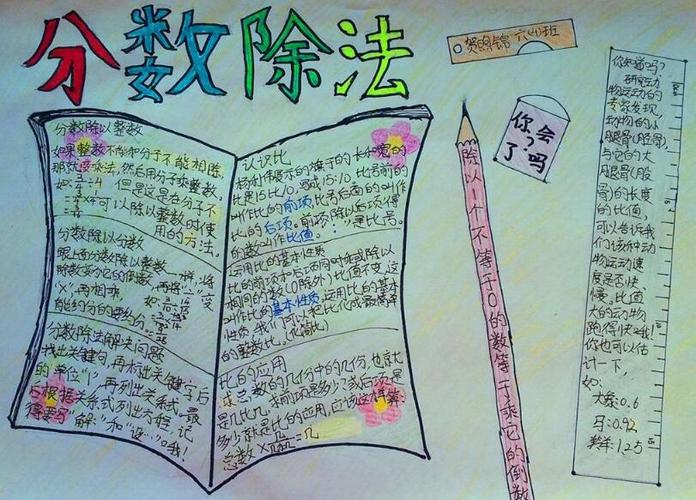 分数除法
贺照锦 六(4)班
分数除以整数
如果整数不能和分子不能相除
那就变乘法,然后用分子乘整数。
但是这是在分子不
可以除以整数的使
用的方法。
分数除以分数
跟上面分数除以整数一样,将
除数变
"X",再相乘,
能约分的要约分。
分数除法解决问题
找出关键句,再标出关键字后
的单位"1",再列出关系式,最
后根据关系式列出方程,记
得要写"解:"和"设…"哦!
认识比
杨利伟展示的旗子的长和宽的
比是15比10,写成15:10,比号前的
叫作比的前项,比号后面的叫作
比的后项。前项除以后项得
的数叫作比值,":"是比号。
运用比的基本性质
比的前项和后项同时乘或除以
相同的数(0除外)比值不变,这
叫作比的基本性质。运用比的基本
性质,我们可以把比化成最简单
的整数比。(化简)
比的应用
求总数的几份中的几份,也就
是几比几,求前项是多少?或后项是
多少就是比的应用,应该这样算:
你会
了吗
?
除以1个不等于0的数等于乘它的倒数
你知道吗?
研究动
物运动的
专家发现,
动物的小
腿骨(胫骨)
与它的大
腿骨(股
骨)的长度
的比值,
可以告诉我
们该种动
物运动速
度是不快
慢。比值
大的动物
跑得快哦!
你也可以估
计一下,
如:
大象:0.6
马:0.92
羚羊:1.25